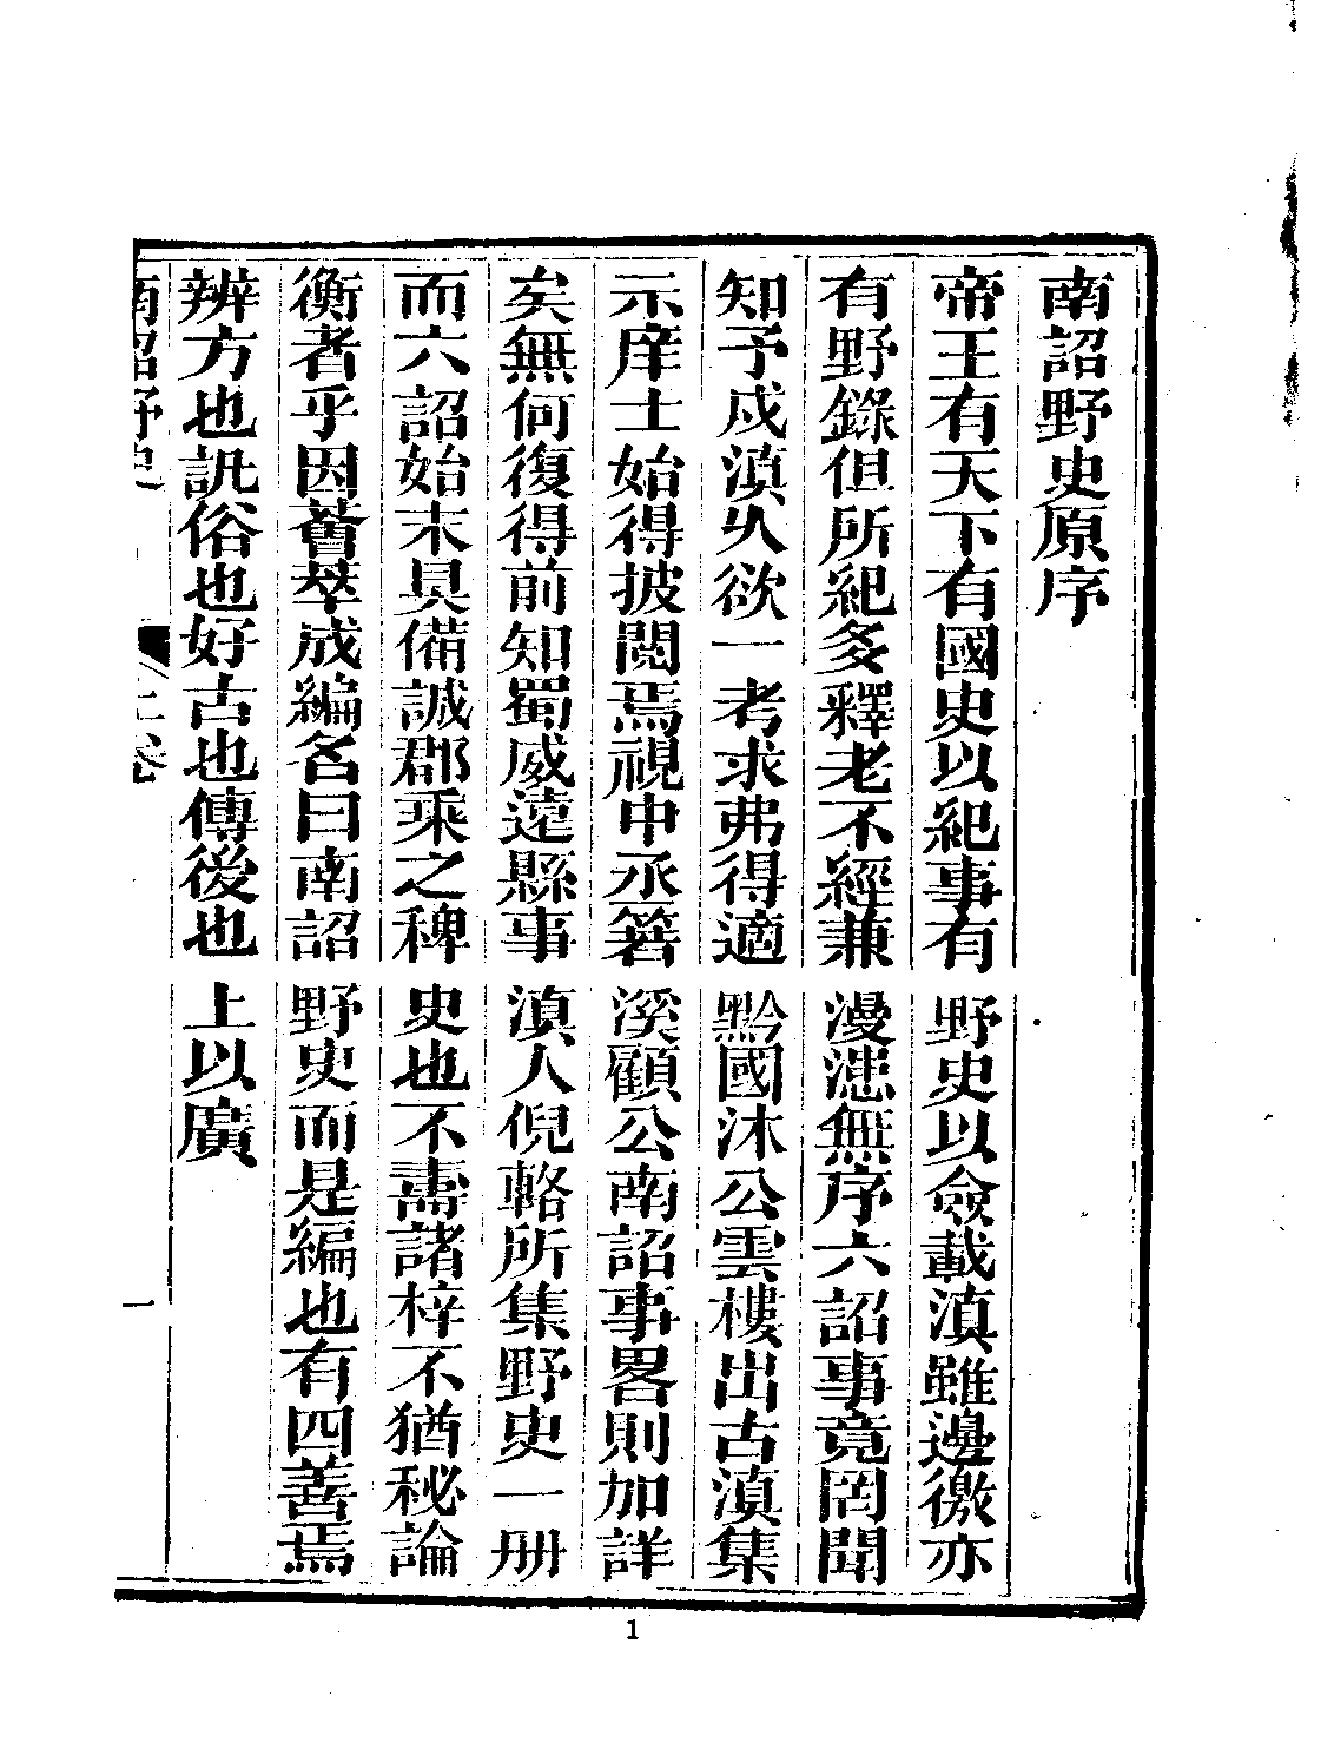 南詔野史原序
帝王有天下有國史以紀事有野史以僉載滇雖邊徼亦
有野錄但所紀多釋老不經兼漫漶無序六詔事竟罔聞
知予戍滇久欲一考求弗得適黔國沐公雲樓出古滇集
示庠士始得披閱焉視中丞箬溪顧公南詔事畧則加詳
矣無何復得前知蜀威遠縣事滇人倪輅所集野史一册
而六詔始末具備誠郡乘之稗史也不壽諸梓不猶秘論
衡者乎因薈萃成編名曰南詔野史而是編也有四善焉
辨方也訊俗也好古也傳後也上以廣
南詔野史
上卷
一
1